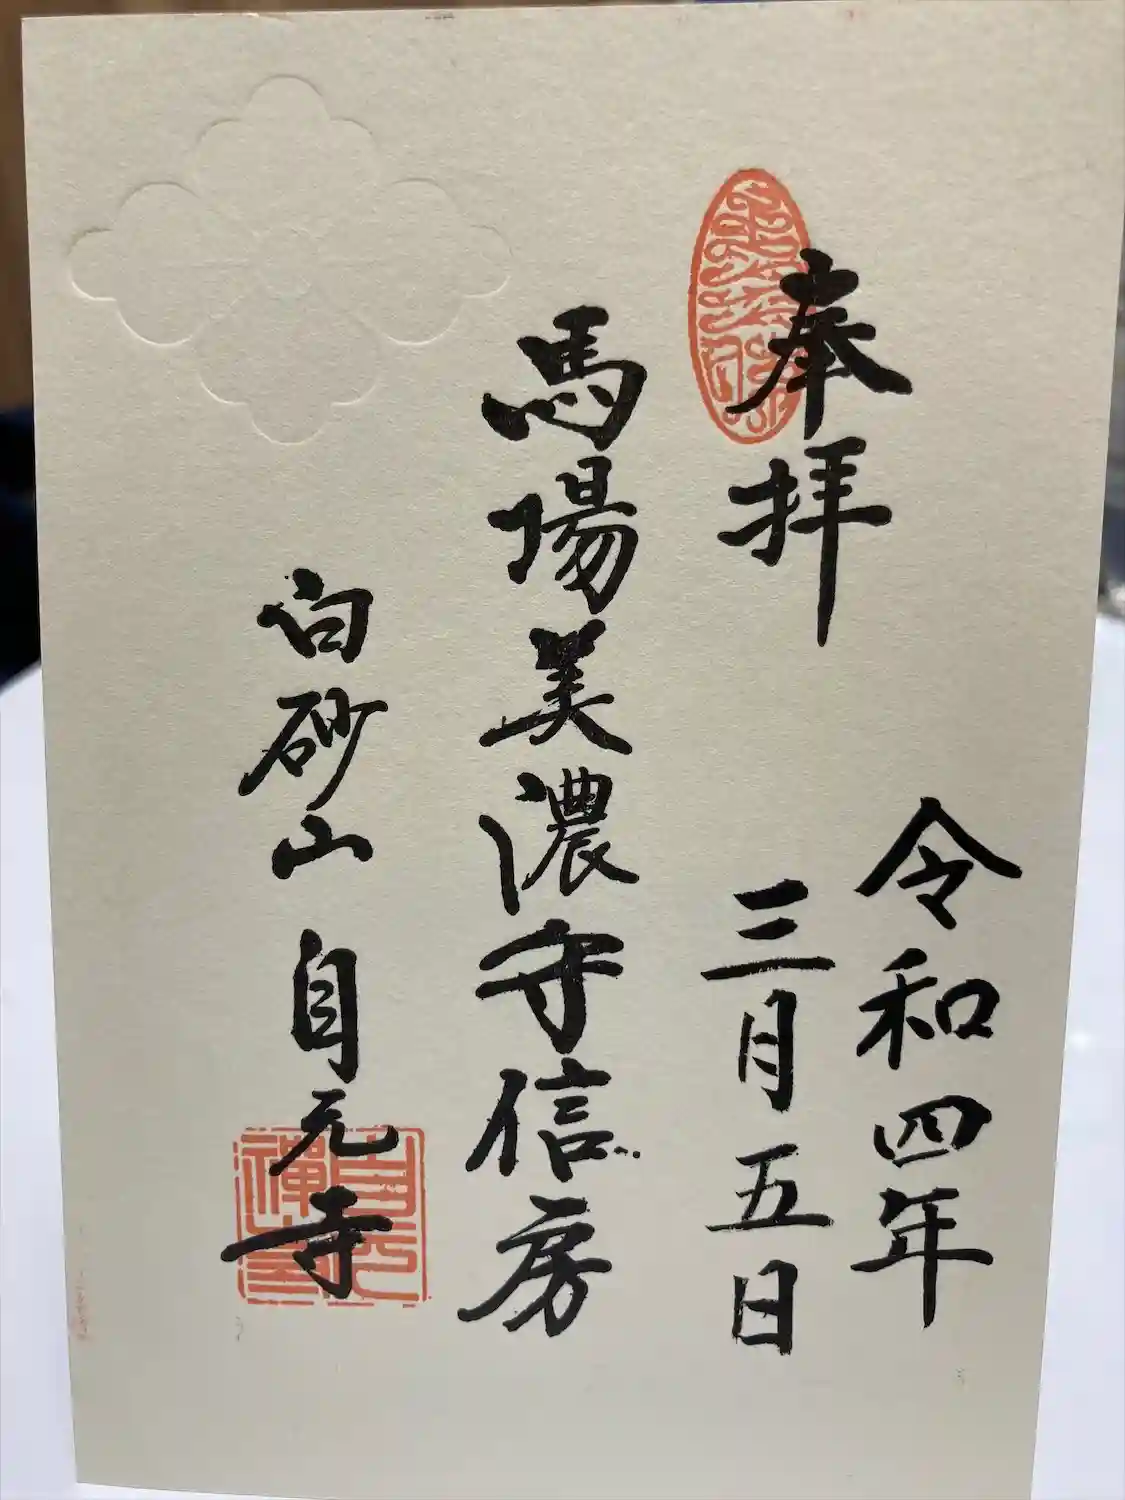 奉拝
令和四年
三月五日
馬場美濃守信房
白砂山 自元寺
自元禅寺